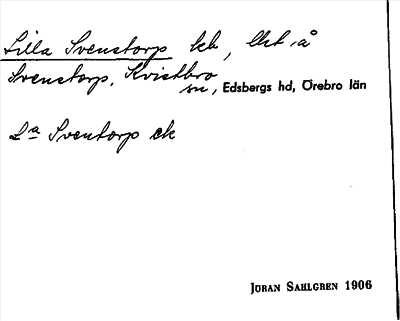 Lilla Svenstorp lch, lht å
Svenstorp, Kvistbro
sn, Edsbergs hd, Örebro län
La Sventorp ek
Jöran Sahlgren 1906